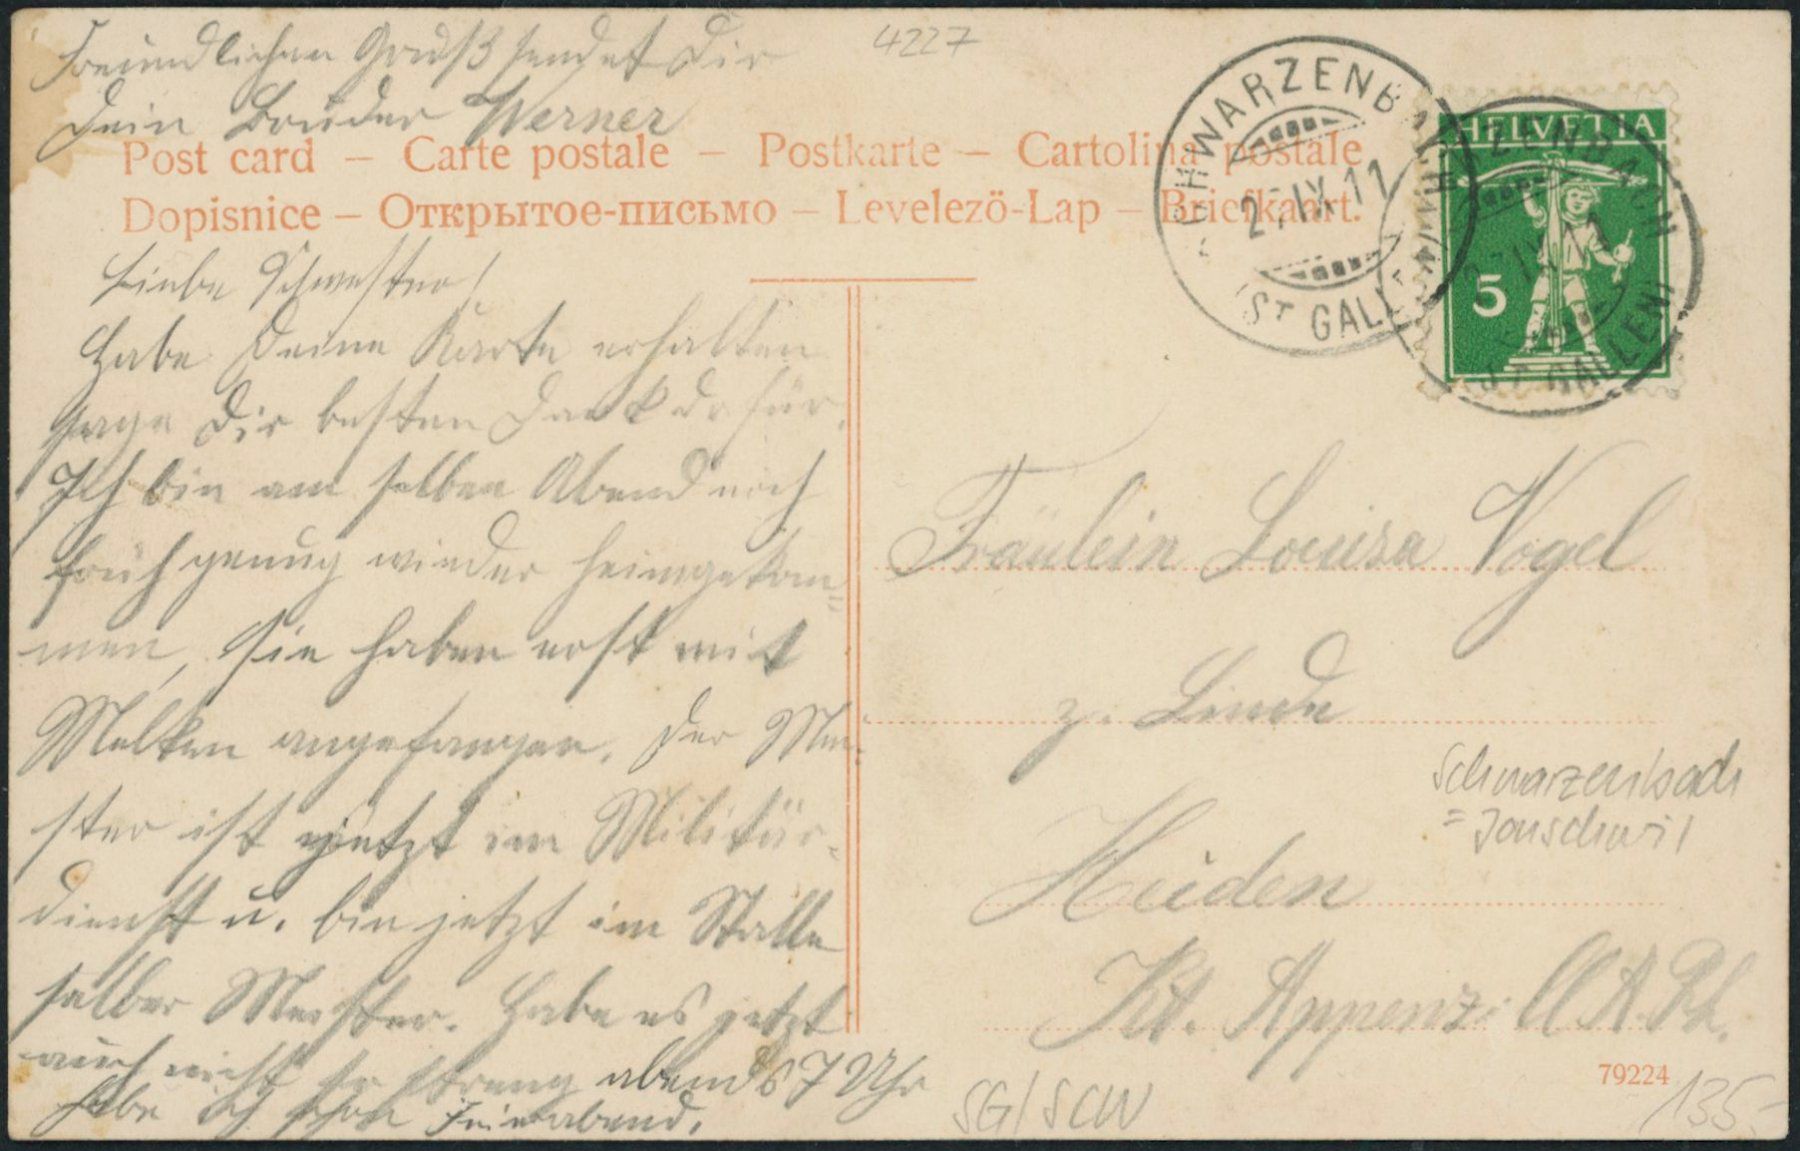 Freundlichen Gruß sendet Dir
Dein Bruder Werner
4227
Post card – Carte postale – Postkarte – Cartolina postale
Dopisnice – Открытое-письмо – Levelezö-Lap – Briefkaart.
SCHWARZENBACH
27.IX.11
(ST GALLEN)
HELVETIA
5
SCHWARZENBACH
27.IX.11
(ST GALLEN)
Liebe Schwester!
Habe Deine Karte erhalten
sage Dir besten Dank dafür.
Ich bin am selben Abend noch
früh genug wieder heimgekom=
men, Sie haben erst mit
Melken angefangen. Der Mei-
ster ist jetzt im Militär-
dienst u. bin jetzt im Stalle
selber Meister. Habe es jetzt
auch nicht so streng abends 7 Uhr
habe ich schon Feierabend.
Fräulein Louisa Vogel
z. Linde
Heiden
Kt. Appenzell A. Rh.
Schwarzenbach
= Jonschwil
79224
SG/SCW
135.-